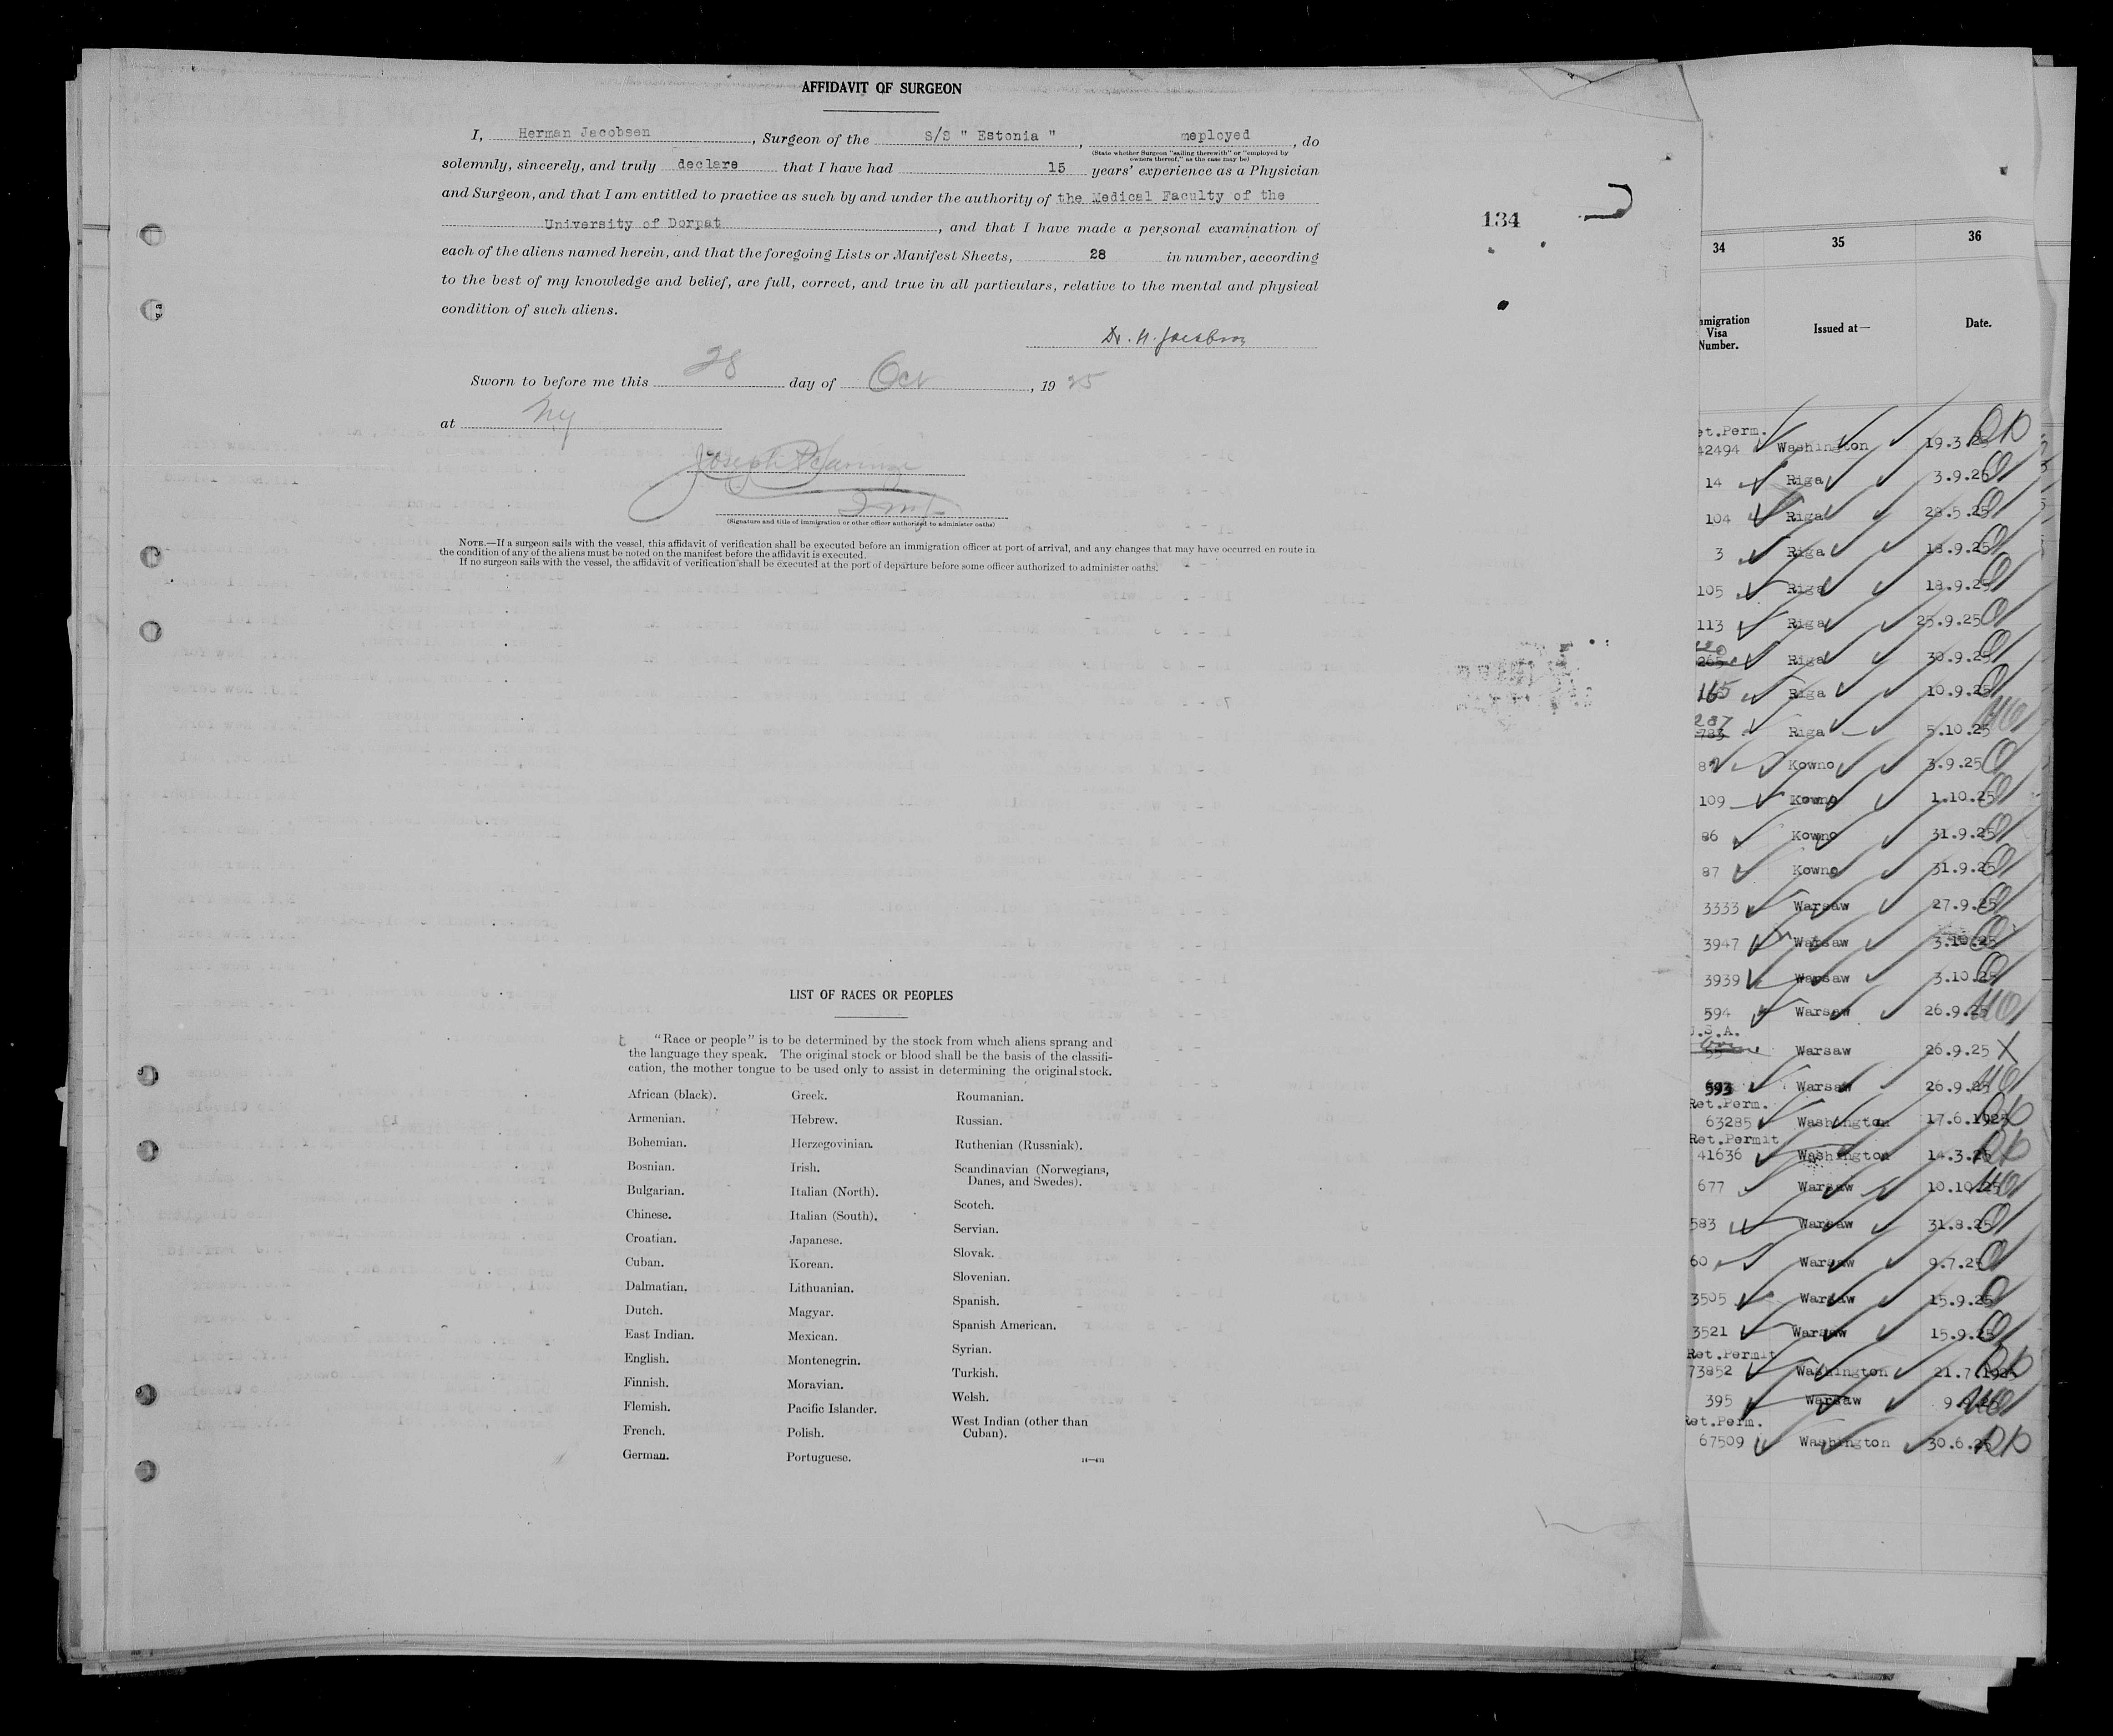 AFFIDAVIT OF SURGEON
I, Herman Jacobsen, Surgeon of the S/S " Estonia ", meployed, do
(State whether Surgeon "sailing therewith" or "employed by
owners thereof," as the case may be)
solemnly, sincerely, and truly declare that I have had 15 years' experience as a Physician
and Surgeon, and that I am entitled to practice as such by and under the authority of the Medical Faculty of the
University of Dorpat, and that I have made a personal examination of
each of the aliens named herein, and that the foregoing Lists or Manifest Sheets, 28 in number, according
to the best of my knowledge and belief, are full, correct, and true in all particulars, relative to the mental and physical
condition of such aliens.
Dr. H. Jacobson
Sworn to before me this 28 day of Oct, 1925
at NY
Joseph
(Signature and title of immigration or other officer authorized to administer oaths)
NOTE.—If a surgeon sails with the vessel, this affidavit of verification shall be executed before an immigration officer at port of arrival, and any changes that may have occurred en route in
the condition of any of the aliens must be noted on the manifest before the affidavit is executed.
If no surgeon sails with the vessel, the affidavit of verification shall be executed at the port of departure before some officer authorized to administer oaths.
134
LIST OF RACES OR PEOPLES
"Race or people" is to be determined by the stock from which aliens sprang and
the language they speak. The original stock or blood shall be the basis of the classifi-
cation, the mother tongue to be used only to assist in determining the original stock.
African (black).
Armenian.
Bohemian.
Bosnian.
Bulgarian.
Chinese.
Croatian.
Cuban.
Dalmatian.
Dutch.
East Indian.
English.
Finnish.
Flemish.
French.
German.
Greek.
Hebrew.
Herzegovinian.
Irish.
Italian (North).
Italian (South).
Japanese.
Korean.
Lithuanian.
Magyar.
Mexican.
Montenegrin.
Moravian.
Pacific Islander.
Polish.
Portuguese.
Roumanian.
Russian.
Ruthenian (Russniak).
Scandinavian (Norwegians,
Danes, and Swedes).
Scotch.
Servian.
Slovak.
Slovenian.
Spanish.
Spanish American.
Syrian.
Turkish.
Welsh.
West Indian (other than
Cuban).
34 35 36
mmigration
Visa
Number.
Issued at—
Date.
et.Perm.
42494 Washington 19.3.25
14 Riga 3.9.25
104 Riga 28.5.25
3 Riga 18.9.25
105 Riga 18.9.25
113 Riga 25.9.25
265 Riga 30.9.25
165 Riga 10.9.25
287
783 Riga 5.10.25
82 Kowno 3.9.25
109 Kowno 1.10.25
86 Kowno 31.9.25
87 Kowno 31.9.25
3333 Warsaw 27.9.25
3947 Warsaw 3.10.25
3939 Warsaw 3.10.25
594 Warsaw 26.9.25
.S.A.
Warsaw 26.9.25 X
593 Warsaw 26.9.25
Ret.Perm.
63285 Washington 17.6.1925
Ret.Permit
41636 Washington 14.3.25
677 Warsaw 10.10.25
583 Warsaw 31.8.25
60 Warsaw 9.7.25
3505 Warsaw 15.9.25
3521 Warsaw 15.9.25
Ret.Permit
73852 Washington 21.7.1925
395 Warsaw
Ret.Perm.
67509 Washington 30.6.25